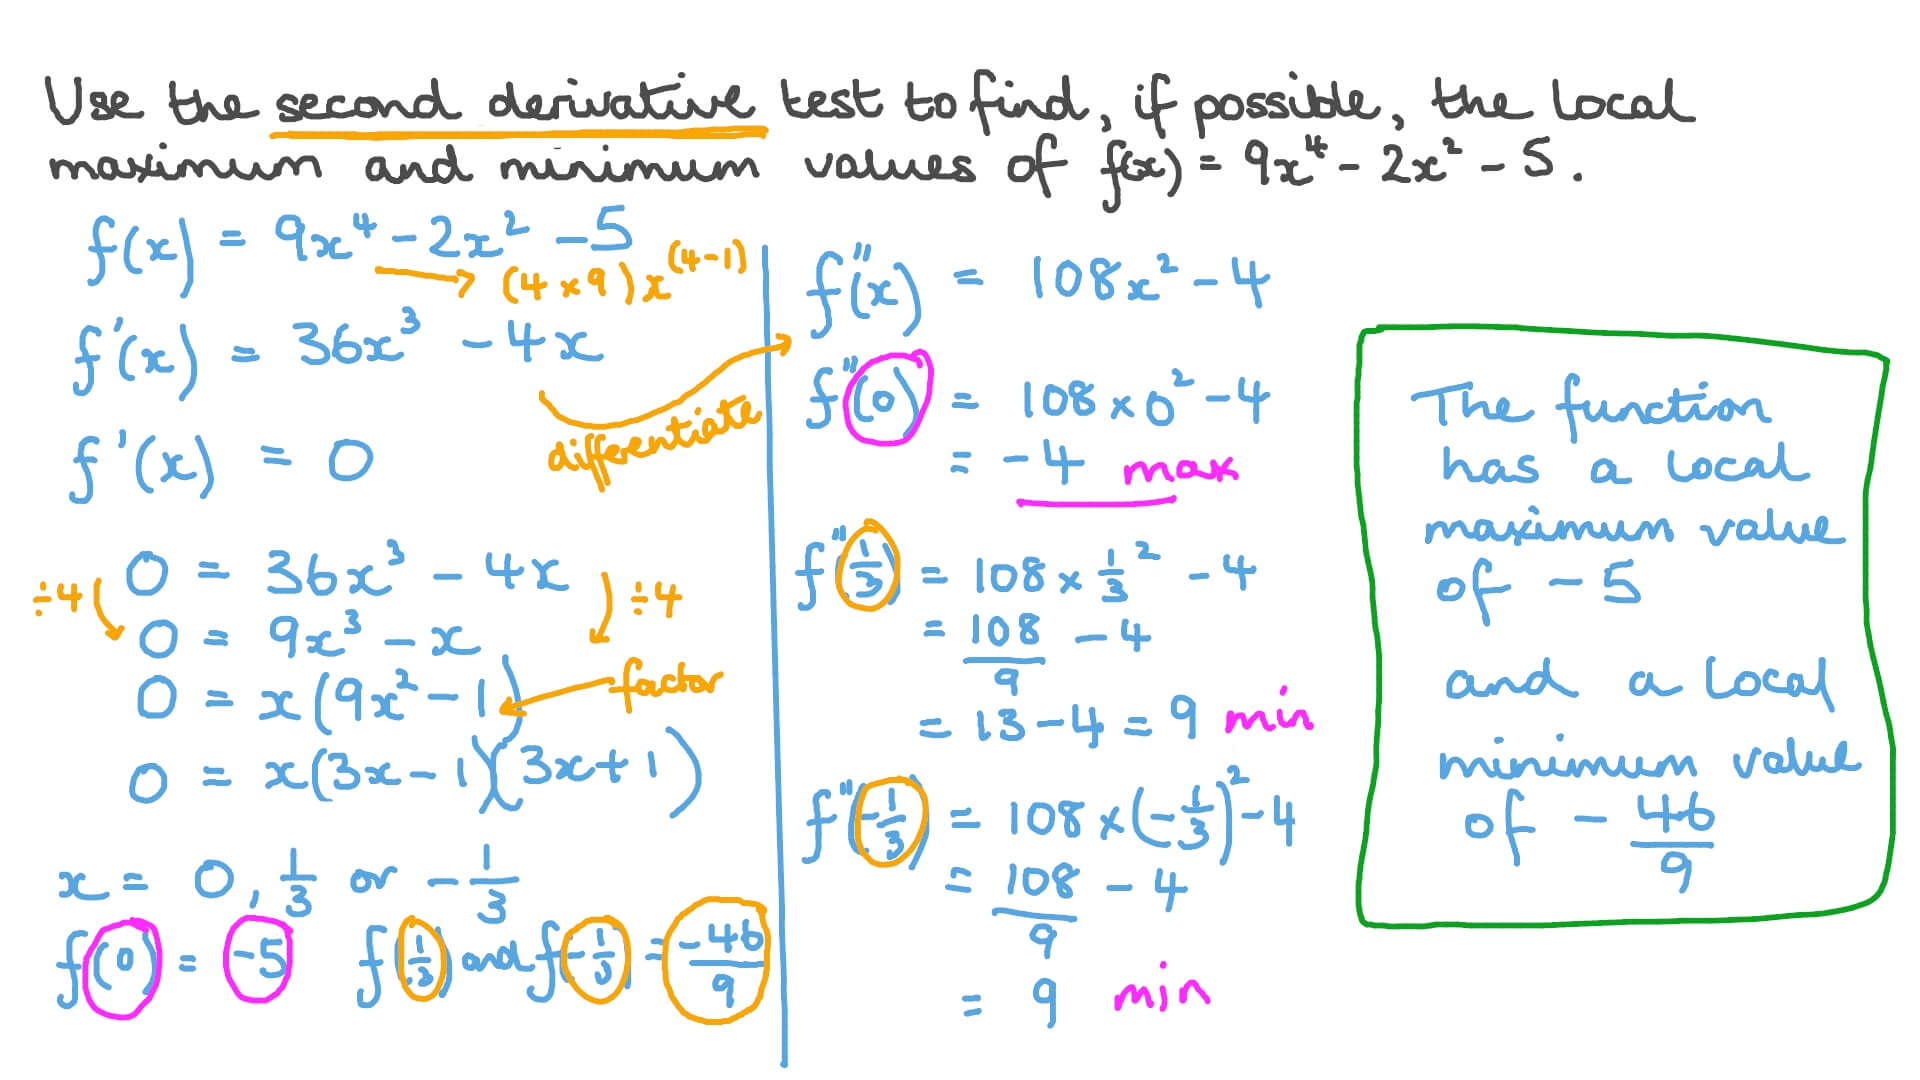 Use the second derivative test to find, if possible, the local
maximum and minimum values of f(x) = 9x⁴ - 2x² - 5.
f(x) = 9x⁴ - 2x² - 5
(4 × 9)x^(4-1)
f'(x) = 36x³ - 4x
differentiate
f'(x) = 0
0 = 36x³ - 4x
÷4
÷4
0 = 9x³ - x
0 = x(9x² - 1)
factor
0 = x(3x - 1)(3x + 1)
x = 0, 1/3 or -1/3
f(0) = -5 f(1/3) and f(-1/3) = -46/9
f''(x) = 108x² - 4
f''(0) = 108 × 0² - 4
= -4 max
f''(1/3) = 108 × 1/3² - 4
= 108/9 - 4
= 13 - 4 = 9 min
f''(-1/3) = 108 × (-1/3)² - 4
= 108/9 - 4
= 9 min
The function
has a local
maximum value
of -5
and a local
minimum value
of -46/9